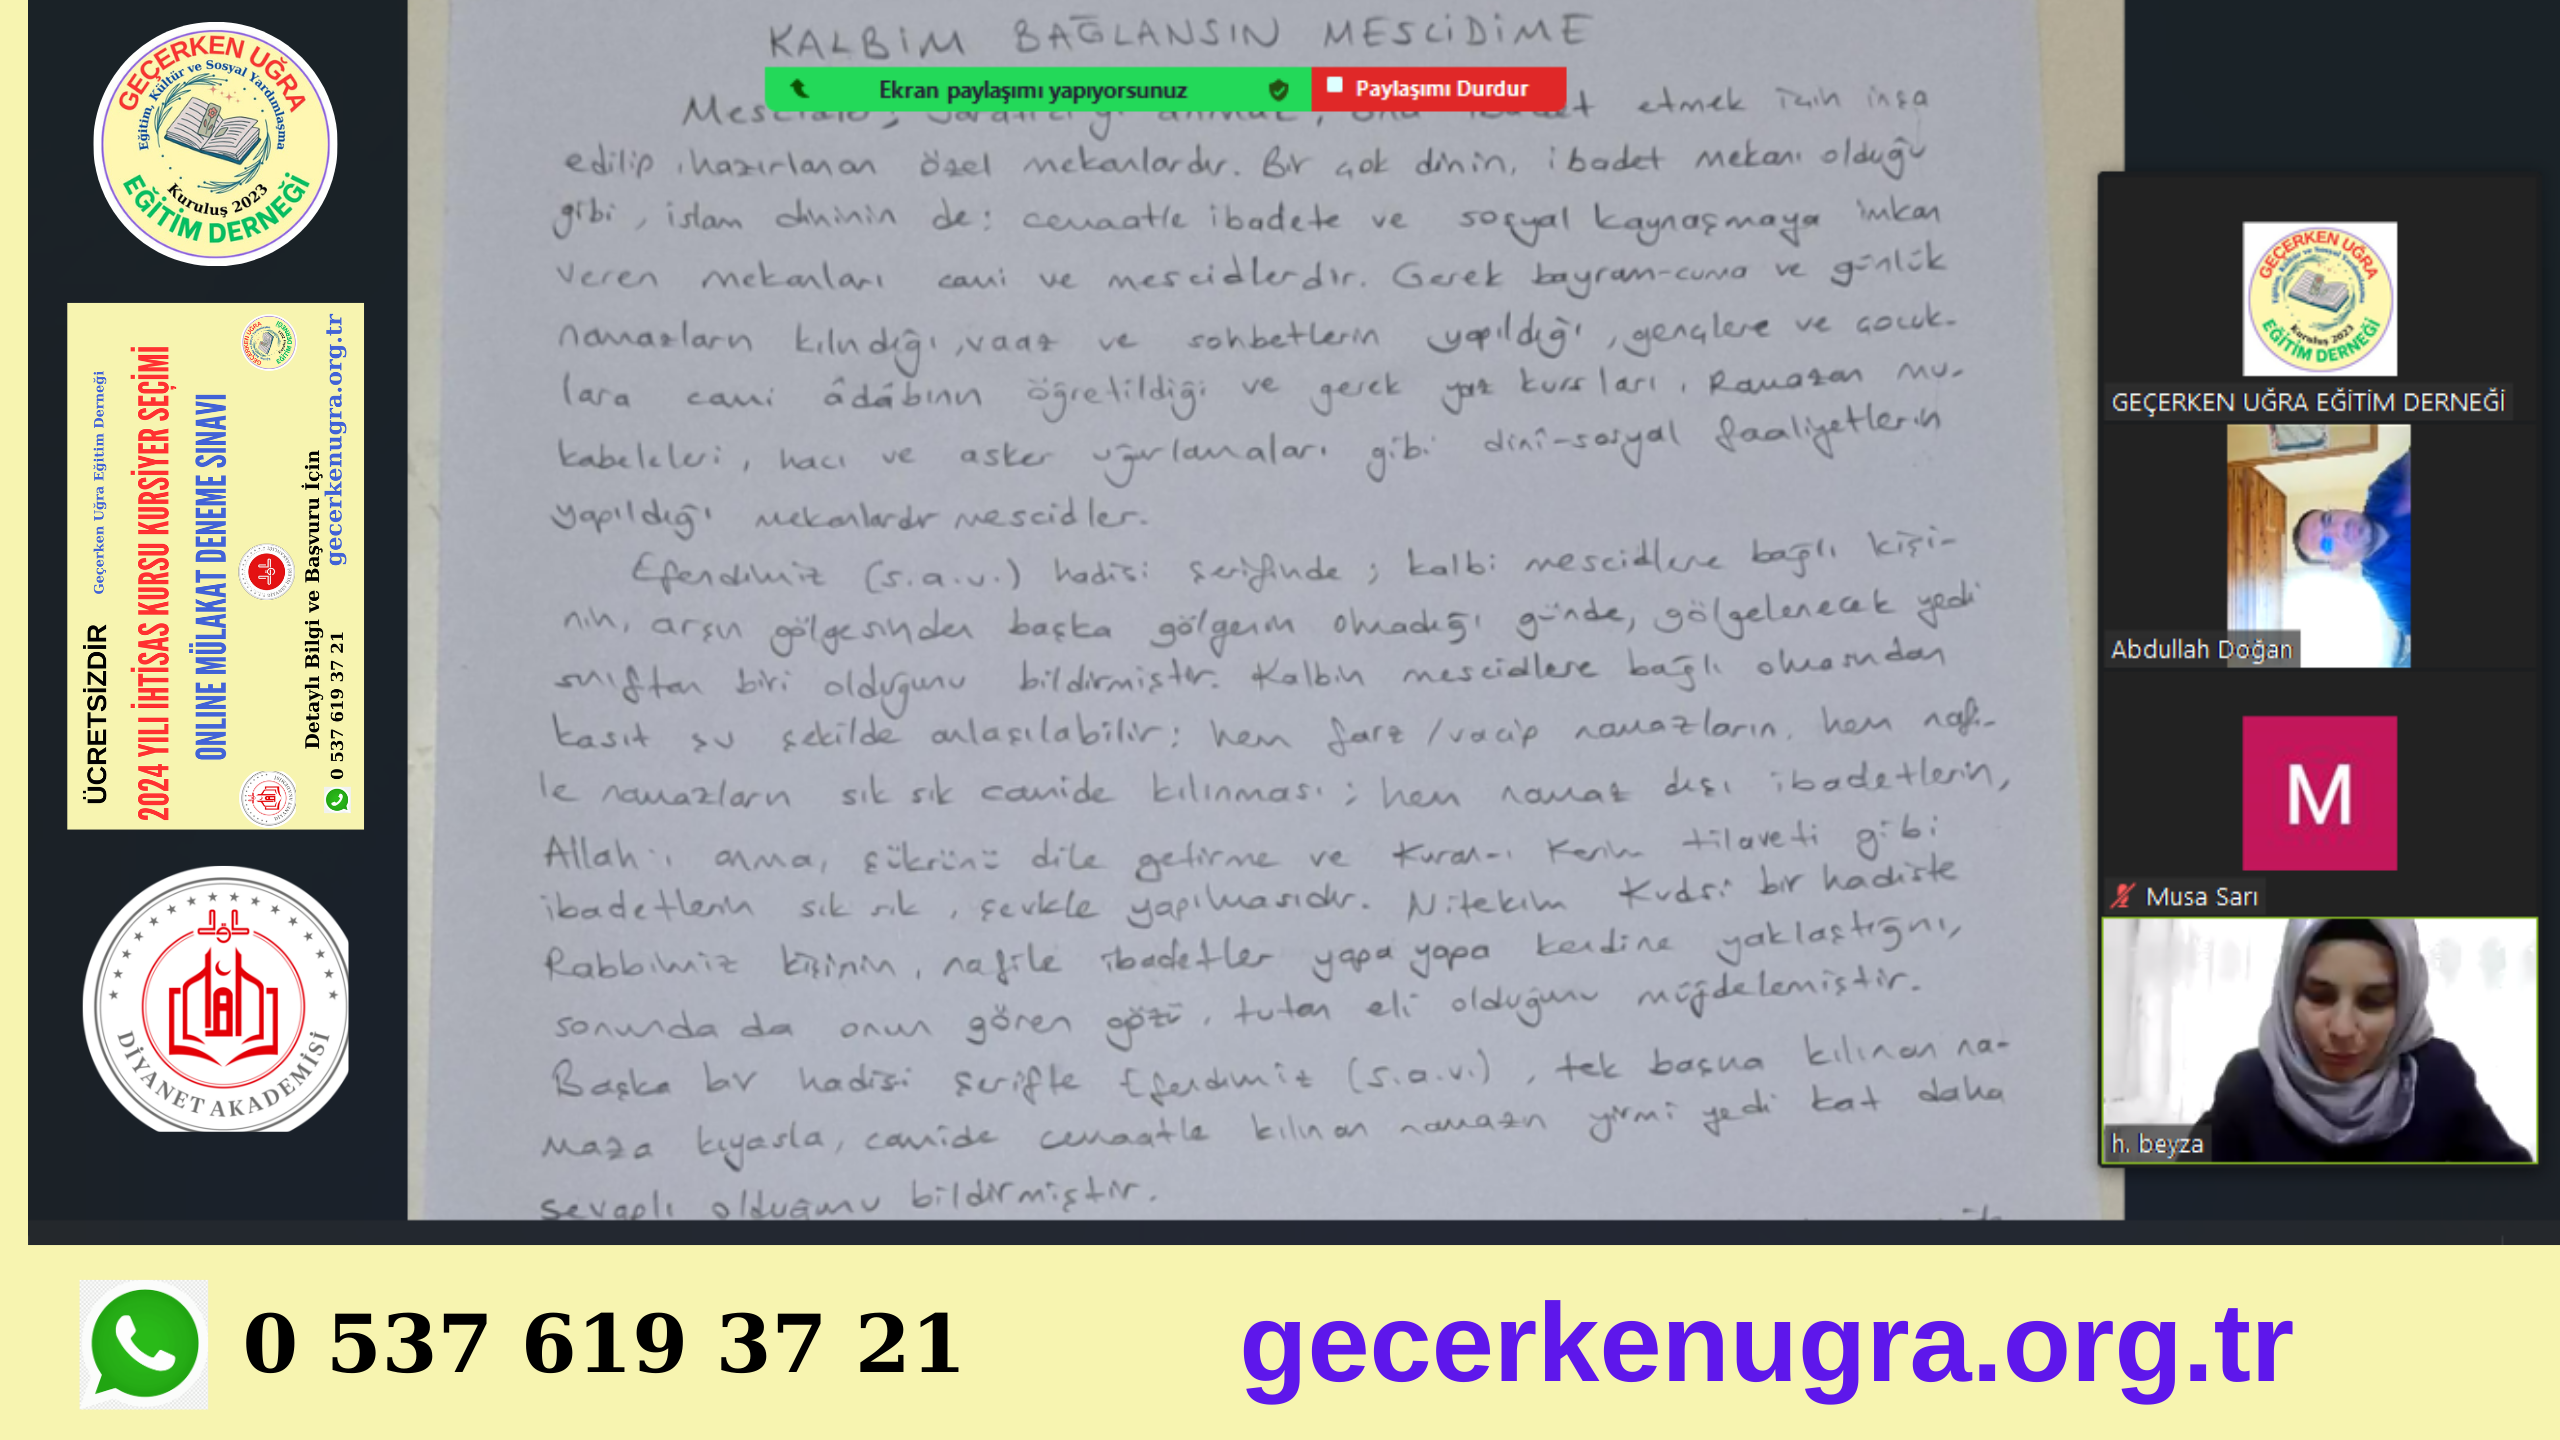 GEÇERKEN UĞRA
Eğitim, Kültür ve Sosyal Yardımlaşma
Kuruluş 2023
EĞİTİM DERNEĞİ
ÜCRETSİZDİR
Geçerken Uğra Eğitim Derneği
2024 YILI İHTİSAS KURSU KURSİYER SEÇİMİ
ONLINE MÜLAKAT DENEME SINAVI
Detaylı Bilgi ve Başvuru İçin
0 537 619 37 21 gecerkenugra.org.tr
DİYANET AKADEMİSİ
KALBİM BAĞLANSIN MESCİDİME
Ekran paylaşımı yapıyorsunuz
Paylaşımı Durdur
etmek için inşa
edilip, hazırlanan özel mekanlardır. Bir çok dinin, ibadet mekanı olduğu
gibi, islam dininin de; cemaatle ibadete ve sosyal kaynaşmaya imkan
veren mekanları cami ve mescidlerdir. Gerek bayram-cuma ve günlük
namazların kılındığı, vaaz ve sohbetlerin yapıldığı, gençlere ve çocuk-
lara cami âdâbının öğretildiği ve gerek yaz kursları, Ramazan mu-
kabeleleri, hacı ve asker uğurlamaları gibi dinî-sosyal faaliyetlerin
yapıldığı mekanlardır mescidler.
Efendimiz (s.a.v.) hadisi şerifinde; kalbi mescidlere bağlı kişi-
nin, arşın gölgesinden başka gölgenin olmadığı günde, gölgelenecek yedi
sınıftan biri olduğunu bildirmiştir. Kalbin mescidlere bağlı olmasından
kasıt şu şekilde anlaşılabilir; hem farz/vacip namazların, hem nafi-
le namazların sık sık camide kılınması; hem namaz dışı ibadetlerin,
Allah'ı anma, şükrünü dile getirme ve Kuran-ı Kerim tilaveti gibi
ibadetlerin sık sık, şevkle yapılmasıdır. Nitekim Kudsi bir hadiste
Rabbimiz kişinin, nafile ibadetler yapa yapa kendine yaklaştığını,
sonunda da onun gören gözü, tutan eli olduğunu müjdelemiştir.
Başka bir hadisi şerifte Efendimiz (s.a.v.), tek başına kılınan na-
maza kıyasla, camide cemaatle kılınan namazın yirmi yedi kat daha
sevaplı olduğunu bildirmiştir.
GEÇERKEN UĞRA
EĞİTİM DERNEĞİ
GEÇERKEN UĞRA EĞİTİM DERNEĞİ
Abdullah Doğan
M
Musa Sarı
h. beyza
0 537 619 37 21
gecerkenugra.org.tr